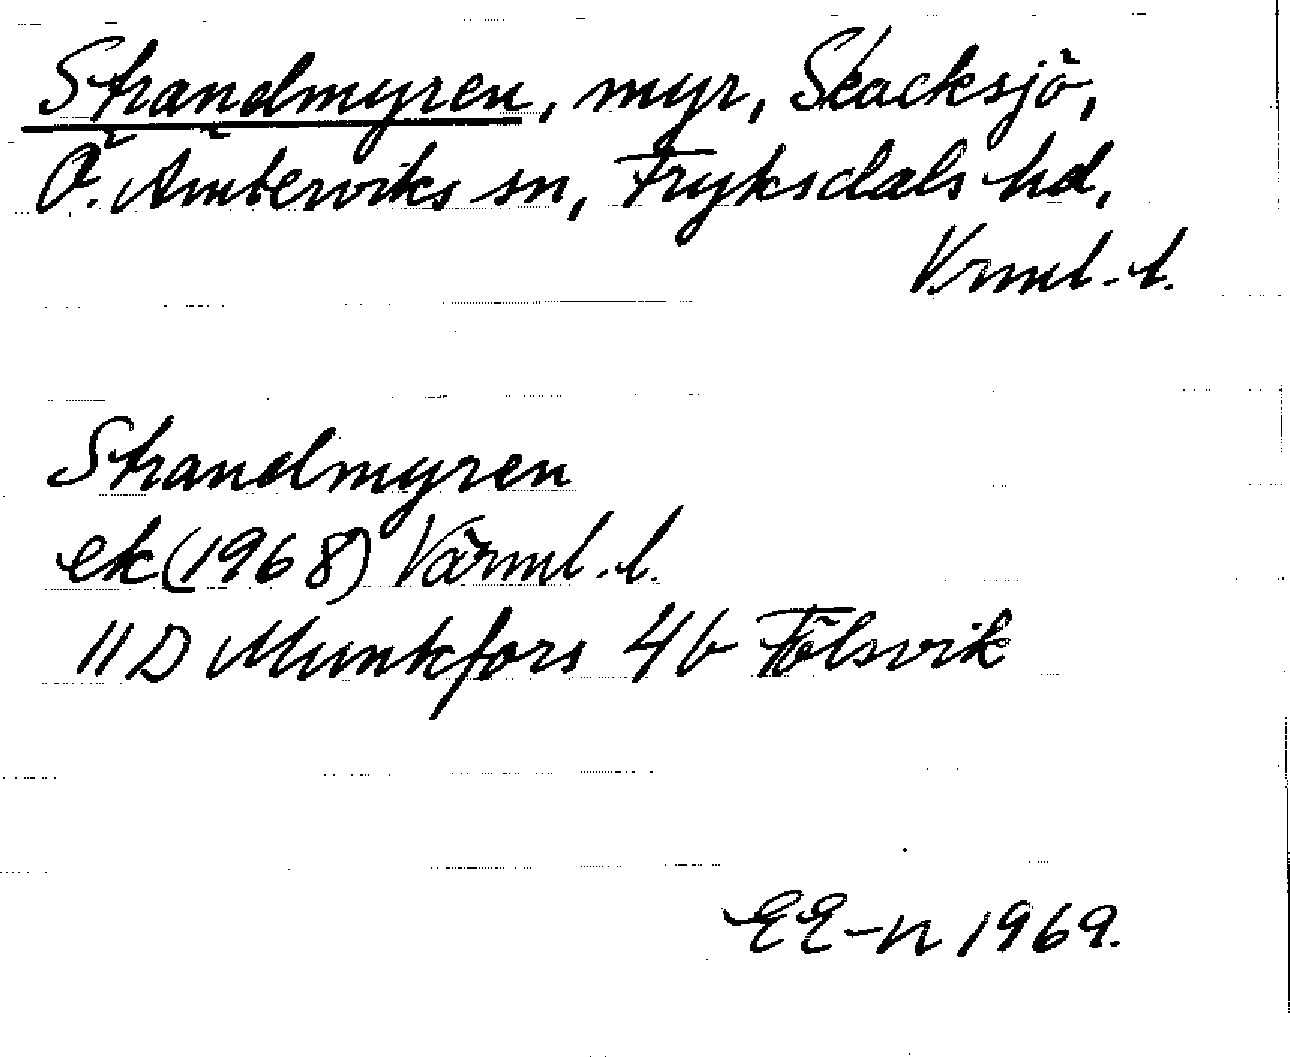 Strandmyren, myr, Skacksjö,
Ö. Ämterviks sn, Fryksdals hd,
Vrml. l.
Strandmyren
ek (1968) Värml. l.
11 D Munkfors 4 b Fölsvik
EE-n 1969.